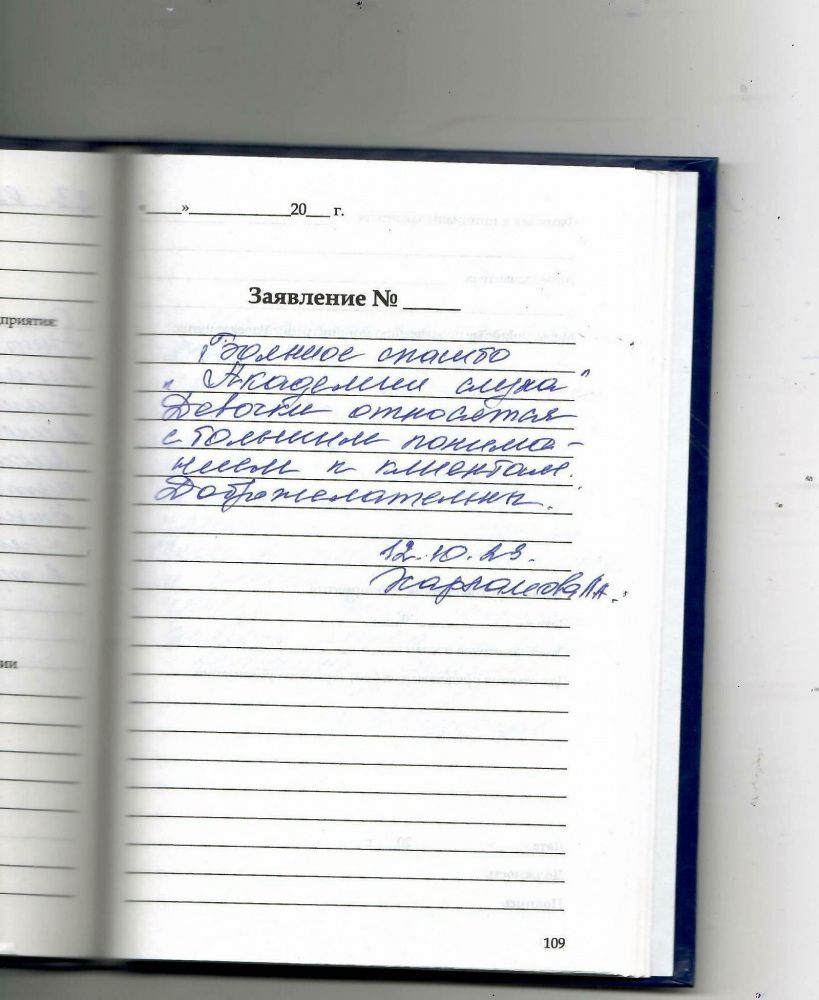 «____»____________20___ г.
Заявление № _____
дприятия:
Большое спасибо
"Академии слуха"
Девочки относятся
с большим понима-
нием к клиентам.
Доброжелательны.
12.10.23.
ии
109